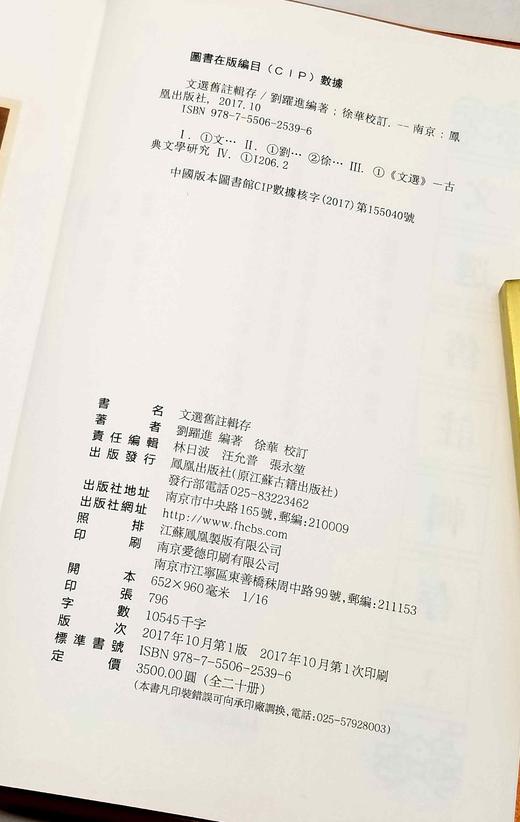 圖書在版編目（CIP）數據
文選舊註輯存 / 劉躍進編著；徐華校訂. — 南京：鳳
凰出版社，2017.10
ISBN 978-7-5506-2539-6
Ⅰ. ①文… Ⅱ. ①劉… ②徐… Ⅲ. ①《文選》—古
典文學研究 Ⅳ. ①I206.2
中國版本圖書館CIP數據核字(2017)第155040號
書名 文選舊註輯存
著者 劉躍進 編著 徐華 校訂
責任編輯 林日波 汪允普 張永堃
出版發行 鳳凰出版社(原江蘇古籍出版社)
發行部電話025-83223462
出版社地址 南京市中央路165號,郵編:210009
出版社網址 http://www.fhcbs.com
照排 江蘇鳳凰製版有限公司
印刷 南京愛德印刷有限公司
南京市江寧區東善橋秣周中路99號,郵編:211153
開本 652×960毫米 1/16
印張 796
字數 10545千字
版次 2017年10月第1版 2017年10月第1次印刷
標準書號 ISBN 978-7-5506-2539-6
定價 3500.00圓（全二十册）
(本書凡印裝錯誤可向承印廠調換,電話:025-57928003)